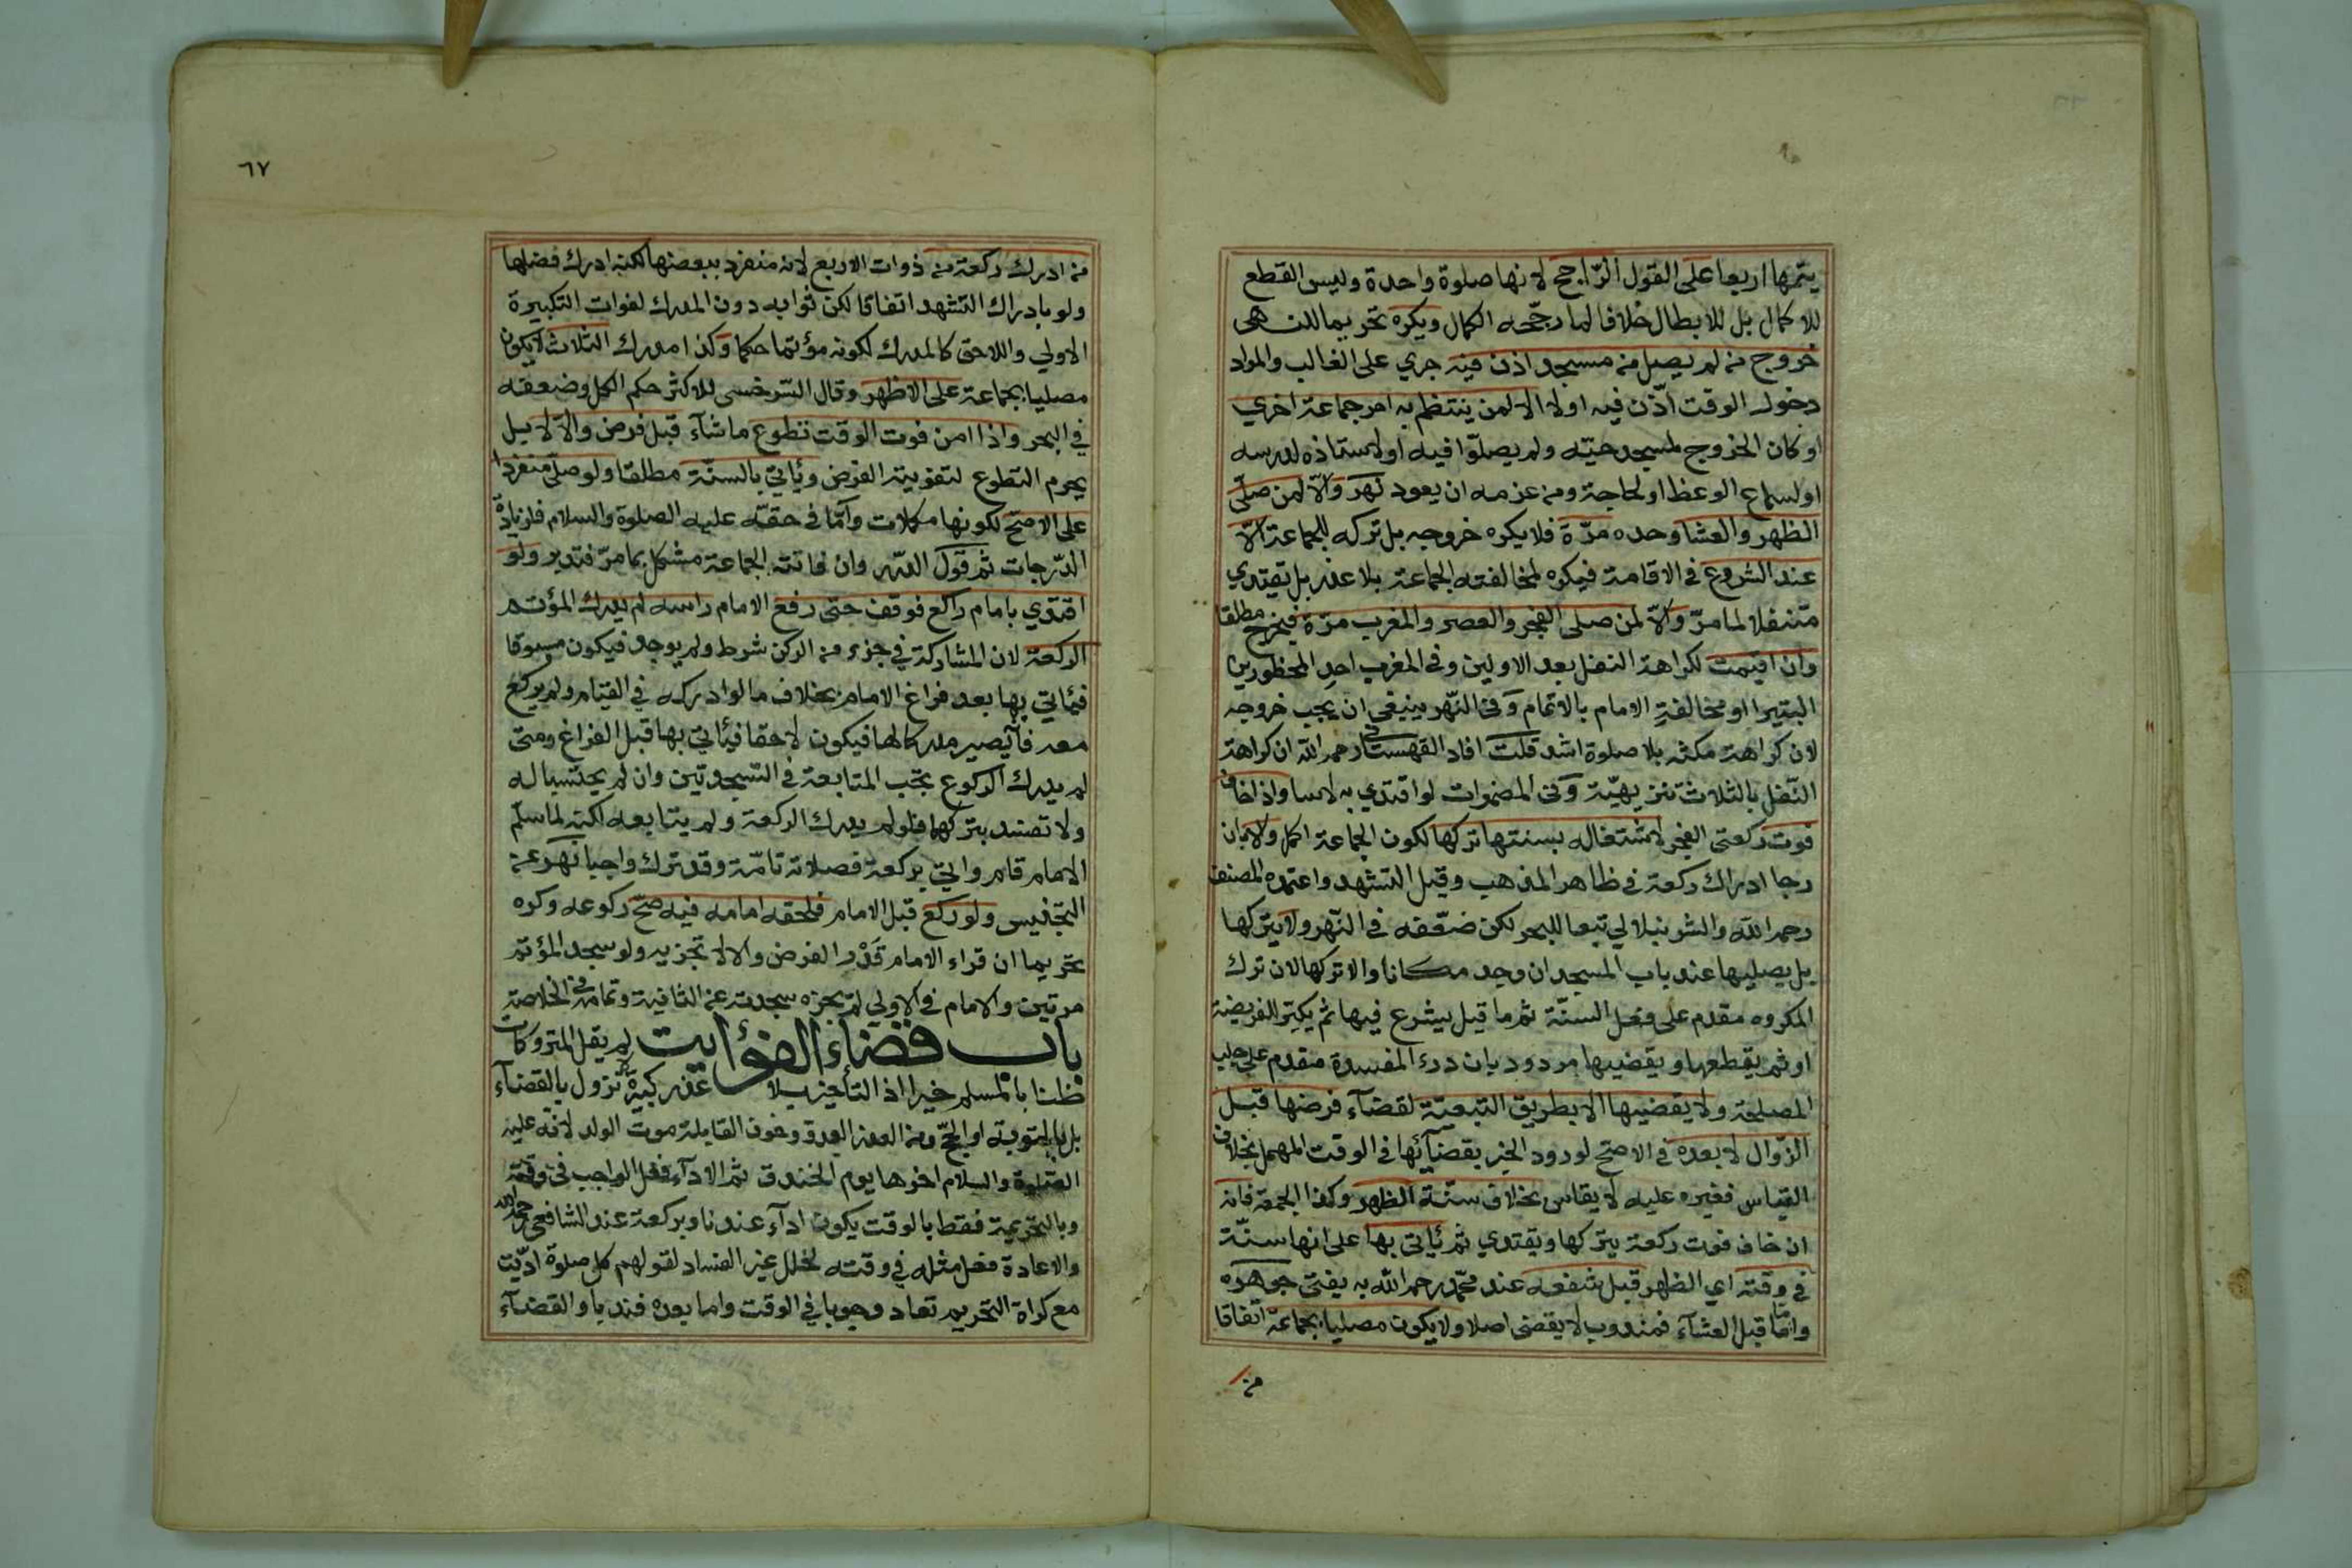 يتمها اربعا على القول الراجح لانها صلوة واحدة وليس القطع
للاكمال بل للابطال خلافا لما رجّحه الكمال ويكره تحريما للنهى
خروج من لم يصل من مسجد اذن فيه جري على الغالب والمراد
دخول الوقت اذّن فيه اولا الا لمن ينتظم به امر جماعة اخري
او كان الخروج لمسجد حيّه ولم يصلّوا فيه او لاستاذه لدرسه
او لسماع الوعظ او لحاجة ومن عزمه ان يعود نهر والّا لمن صلّى
الظهر والعشا وحده مرّة فلا يكره خروجه بل تركه للجماعة الّا
عند الشروع في الاقامة فيكره لمخالفته الجماعة بلا عذر بل يقتدي
متنفلا لما مرّ والّا لمن صلى الفجر والعصر والمغرب مرّة فيخرج مطلقا
وان اقيمت لكراهة النفل بعد الاولين وفى المغرب احد المحظورين
البتيرا او مخالفة الامام بالاتمام وفى النّهر ينبغي ان يجب خروجه
لان كراهة مكثه بلا صلوة اشد قلت افاد القهستاني رحمه الله ان كراهة
النّفل بالثلاث تنزيهيّة وفى المضمرات لو اقتدي به لاسا واذا خاف
فوت ركعتى الفجر لاشتغاله بسنتها تركها لكون الجماعة اكمل والا بان
رجا ادراك ركعة في ظاهر المذهب وقيل التشهد واعتمده المصنف
رحمه الله والشرنبلالي تبعا للبحر لكن ضعّفه في النّهر ولا يتركها
بل يصليها عند باب المسجد ان وجد مكانا والا تركها لان ترك
المكروه مقدم على فعل السنّة ثم ما قيل يشرع فيها ثم يكبّر للفريضة
او ثم يقطعها ويقضيها مردود بان درء المفسدة مقدم على جلب
المصلحة ولا يقضيها الا بطريق التبعيّة لقضآء فرضها قبل
الزّوال لا بعده في الاصح لورود الخبر بقضآئها في الوقت المهمل بخلاف
القياس فغيره عليه لا يقاس بخلاف سنّة الظهر وكذا الجمعة فانه
ان خاف فوت ركعة يتركها ويقتدي ثم يأتى بها على انها سنّة
في وقته اي الظهر قبل شفعه عند محمّد رحمه الله به يفتى جوهره
وامّا قبل العشآء فمندوب لا يقضى اصلا ولا يكون مصليا بجماعة اتفاقا
من
٦٧
من ادرك ركعة من ذوات الاربع لانه منفرد ببعضها لكنه ادرك فضلها
ولو بادراك التشهد اتفاقا لكن ثوابه دون المدرك لفوات التكبيرة
الاولي واللاحق كالمدرك لكونه مؤتما حكما وكذا مدرك الثلاث لا يكون
مصليا بجماعة على الاظهر وقال السّرخسى للاكثر حكم الكل وضعفه
في البحر واذا امن فوت الوقت تطوع ما شآء قبل فرض والّا لا بل
يحرم التطوع لتفويته الفرض ويأتي بالسنّة مطلقا ولو صلّى منفردا
على الاصحّ لكونها مكملات وامّا في حقّه عليه الصلوة والسلام فلزيادة
الدّرجات ثم قول الدّرر وان فاتته الجماعة مشكل بما مرّ فتدبر ولو
اقتدي بامام راكع فوقف حتى رفع الامام راسه لم يدرك المؤتم
الركعة لان المشاركة في جزء من الركن شرط ولم يوجد فيكون مسبوقا
فيأتي بها بعد فراغ الامام بخلاف ما لو ادركه في القيام ولم يركع
معه فانّه يصير مدركا لها فيكون لاحقا فيأتي بها قبل الفراغ ومتى
لم يدرك الركوع تجب المتابعة في السّجدتين وان لم يحتسبا له
ولا تفسد بتركهما فلو لم يدرك الركعة ولم يتابعه لكنه لما سلّم
الامام قام واتي بركعة فصلاته تامّة وقد ترك واجبا نهر عن
التجنيس ولو ركع قبل الامام فلحقه امامه فيه صحّ ركوعه وكره
تحريما ان قراء الامام قَدْر الفرض والا لا تجزيه ولو سجد المؤتم
مرتين والامام في الاولي لم يجزه سجدته عن الثانية وتمامه في الخلاصة
باب قضاء الفوايت لم يقل المتروكات
ظنا بالمسلم خيرا اذ التأخير بلا عذر كبيرة لا تزول بالقضآء
بل بالتوبة او الحجّ ومن العذر العدو وخوف القابلة موت الولد لانّه عليه
الصّلوة والسلام اخرها يوم الخندق ثم الادآء فعل الواجب في وقته
وبالتحريمة فقط بالوقت يكون ادآء عندنا وبركعة عند الشافعى رحمه الله
والاعادة فعل مثله في وقته لخلل غير الفساد لقولهم كل صلوة ادّيت
مع كراة التحريم تعاد وجوبا في الوقت واما بعده فندبا والقضآء